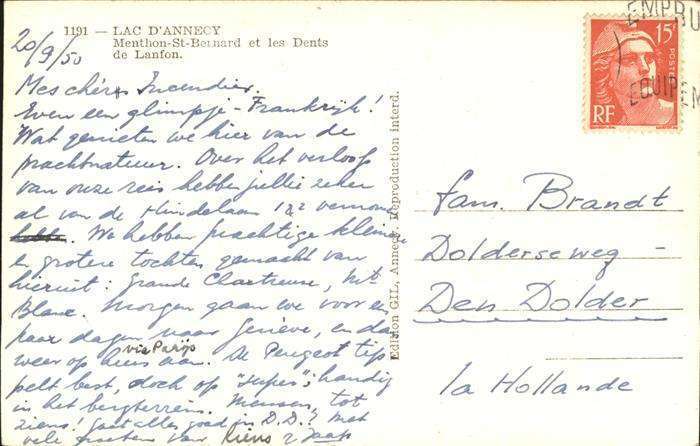 1191 — LAC D'ANNECY
Menthon-St-Bernard et les Dents
de Lanfon.
20/9/50
Mes chérs Incendier.
Even een glimpje Frankrijk!
Wat genieten we hier van de
prachtnatuur. Over het verloop
van onze reis hebben jullie zeker
al van de Hindelaan 182 vernomen
We hebben prachtige kleine
en grotere tochten gemaakt van
hieruit: Grande Chartreuse, Mt
Blanc. Morgen gaan we voor een
paar dagen naar Genève, en dan
weer op huis aan. via Parijs De Peugeot tip
pelt best, doch op "super"; handig
in het bergterrein. Mensen, tot
ziens! Gaat alles goed in D.D.? Met
vele groeten van Riens & Jaap
Edition GIL, Annecy. Reproduction interd.
EMPRU
EQUIPEM
15F
POSTES
RF
fam. Brandt
Dolderseweg -
Den Dolder
la Hollande